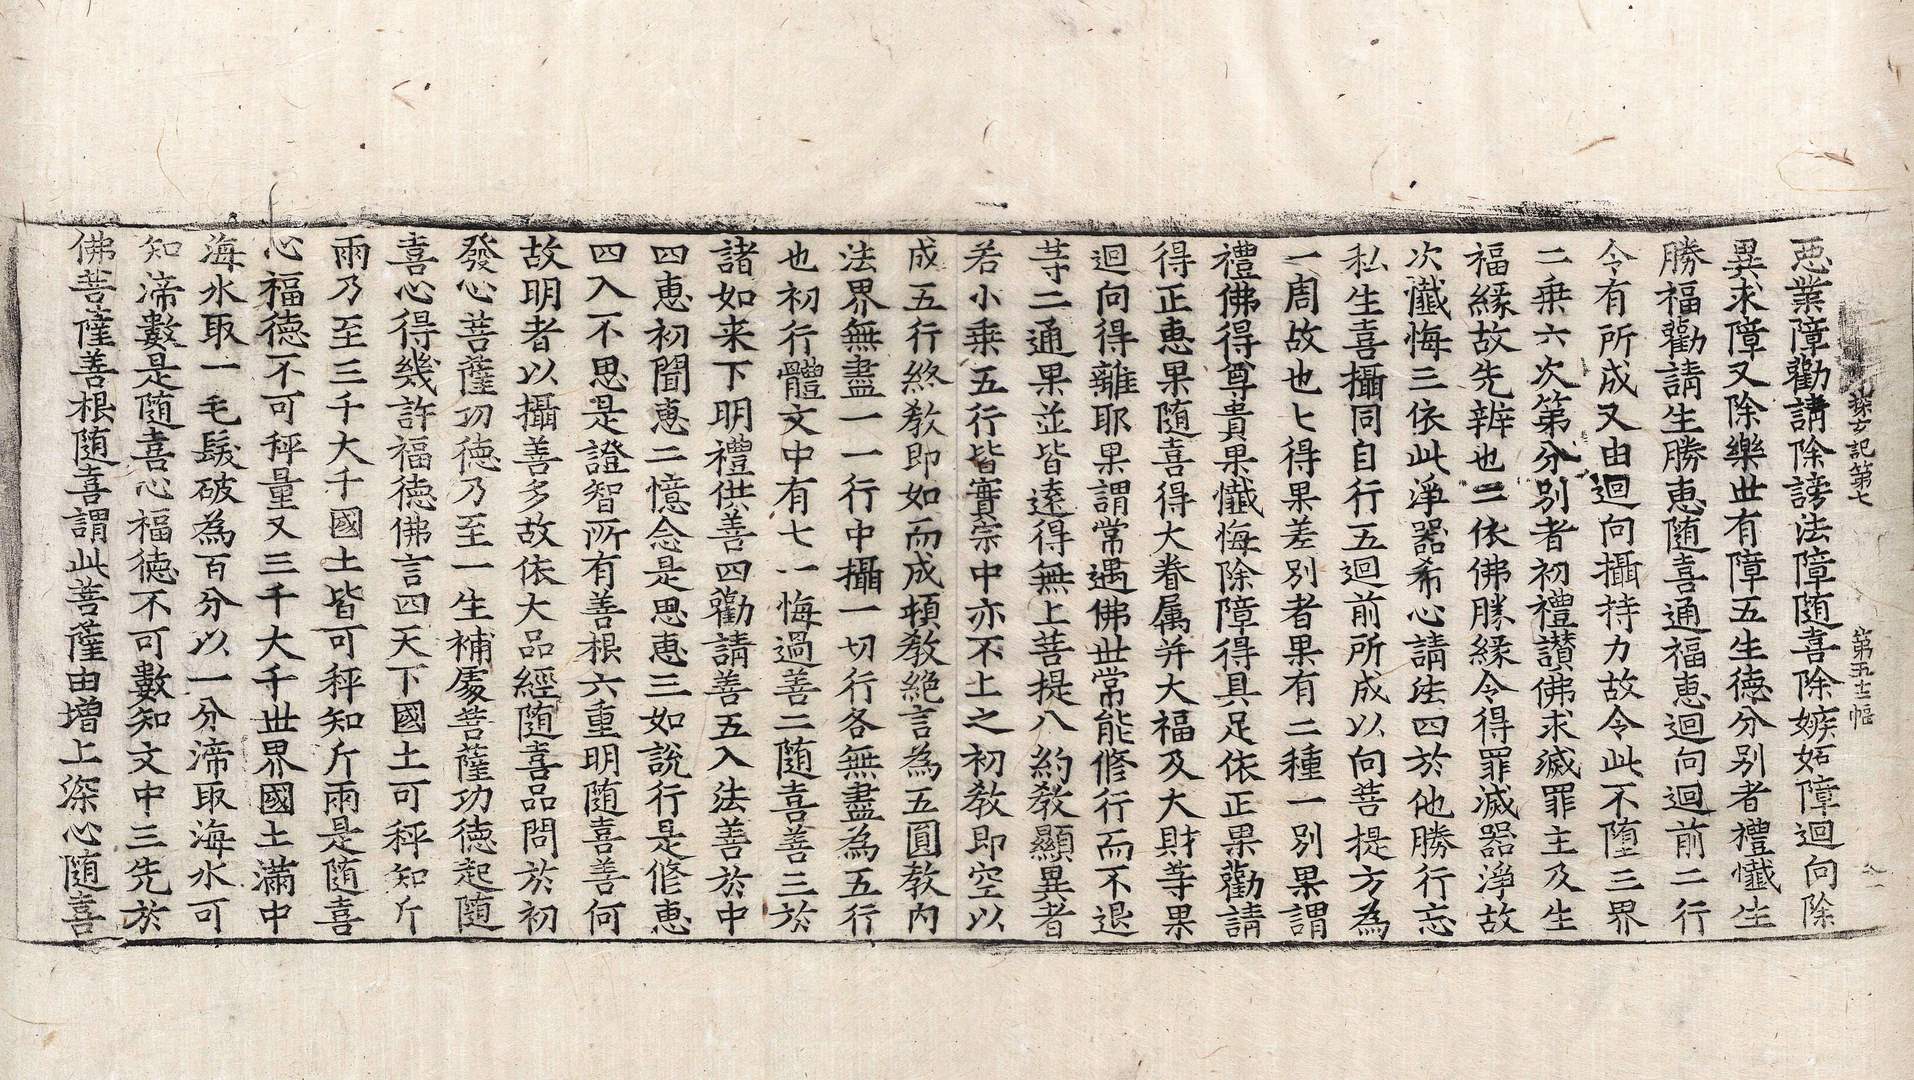 探玄記第七　第五十二幅
惡業障勸請除謗法障随喜除嫉妬障迴向除
異求障又除樂世有障五生德分别者禮懺生
勝福勸請生勝惠随喜通福惠迴向迴前二行
令有所成又由迴向攝持力故令此不墮三界
二乗六次第分别者初禮讃佛求滅罪主及生
福緣故先辨也二依佛勝緣令得罪滅器淨故
次懺悔三依此淨器希心請法四於他勝行忘
私生喜攝同自行五迴前所成以向菩提方為
一周故也七得果差别者果有二種一别果謂
禮佛得尊貴果懺悔除障得具足依正果勸請
得正惠果随喜得大眷属并大福及大財等果
迴向得離耶果謂常遇佛世常能修行而不退
等二通果並皆遠得無上菩提八約教顯異者
若小乗五行皆實宗中亦不上之初教即空以
成五行終教即如而成頓教絶言為五圓教内
法界無盡一一行中攝一切行各無盡為五行
也初行體文中有七一悔過善二随喜善三於
諸如来下明禮供善四勸請善五入法善於中
四惠初聞惠二憶念是思惠三如説行是修惠
四入不思是證智所有善根六重明随喜善何
故明者以攝善多故依大品經随喜品問於初
發心菩薩功德乃至一生補處菩薩功德起随
喜心得幾許福德佛言四天下國土可秤知斤
兩乃至三千大千國土皆可秤知斤兩是随喜
心福德不可秤量又三千大千世界國土滿中
海水取一毛髮破為百分以一分渧取海水可
知渧數是随喜心福德不可數知文中三先於
佛菩薩善根随喜謂此菩薩由增上深心随喜